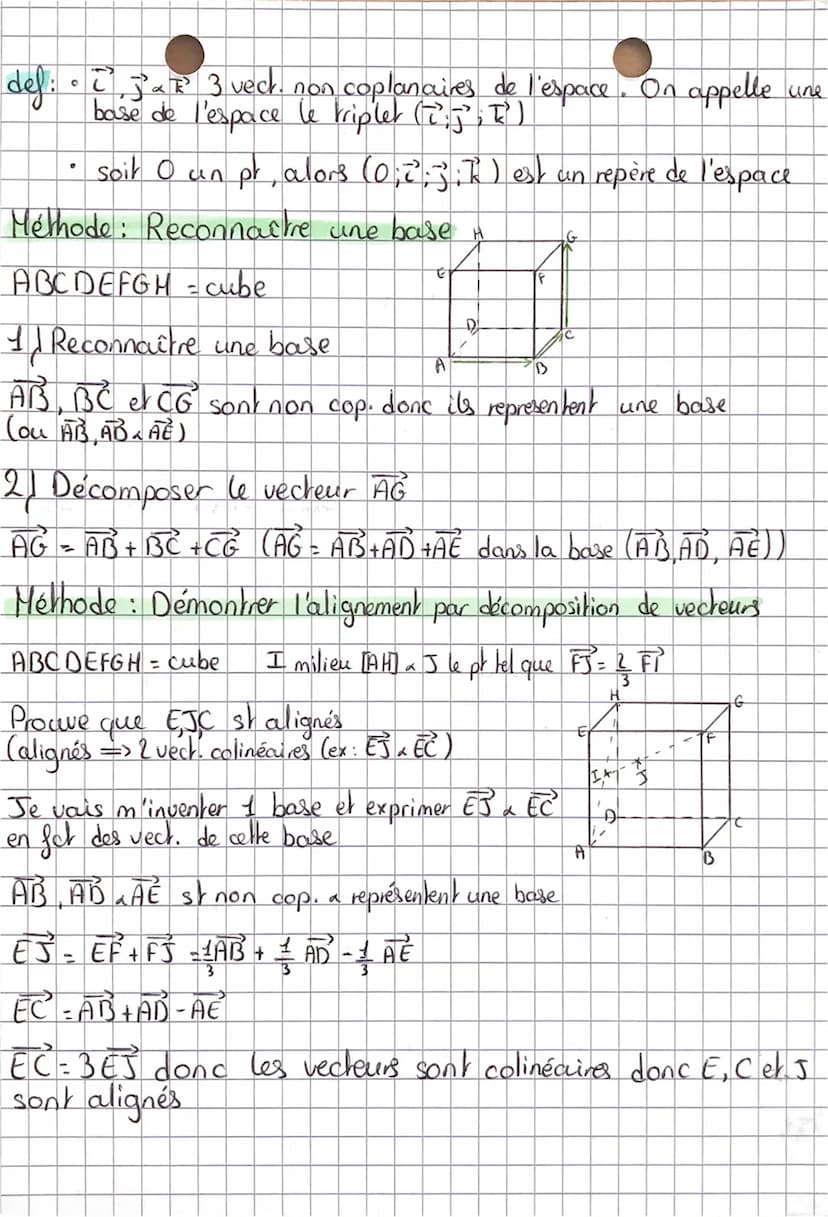 def: • i⃗, j⃗ & k⃗ 3 vect. non coplanaires de l'espace. On appelle une
base de l'espace le triplet (i⃗; j⃗; k⃗)
• soit O un pt, alors (O; i⃗; j⃗; k⃗) est un repère de l'espace
Méthode: Reconnaitre une base
H
G
E
F
ABCDEFGH = cube
D
C
1) Reconnaître une base
A
B
AB⃗, BC⃗ et CG⃗ sont non cop. donc ils representent une base
(ou AB⃗, AD⃗ & AE⃗)
2) Décomposer le vecteur AG⃗
AG⃗ = AB⃗ + BC⃗ + CG⃗ (AG⃗ = AB⃗ + AD⃗ + AE⃗ dans la base (AB⃗, AD⃗, AE⃗))
Méthode: Démontrer l'alignement par décomposition de vecteurs
ABCDEFGH = cube I milieu [AH] & J le pt tel que FJ⃗ = 2/3 FI⃗
H
G
Prouve que E,J,C st alignés
E
F
(alignés => 2 vect. colinéaires (ex: EJ⃗ & EC⃗)
I
J
Je vais m'inventer 1 base et exprimer EJ⃗ & EC⃗
D
C
en fct des vect. de cette base
A
B
AB⃗, AD⃗ & AE⃗ st non cop. & représentent une base
EJ⃗ = EF⃗ + FJ⃗ = 1/3 AB⃗ + 1/3 AD⃗ - 1/3 AE⃗
EC⃗ = AB⃗ + AD⃗ - AE⃗
EC⃗ = 3EJ⃗ donc les vecteurs sont colinéaires donc E, C et J
sont alignés